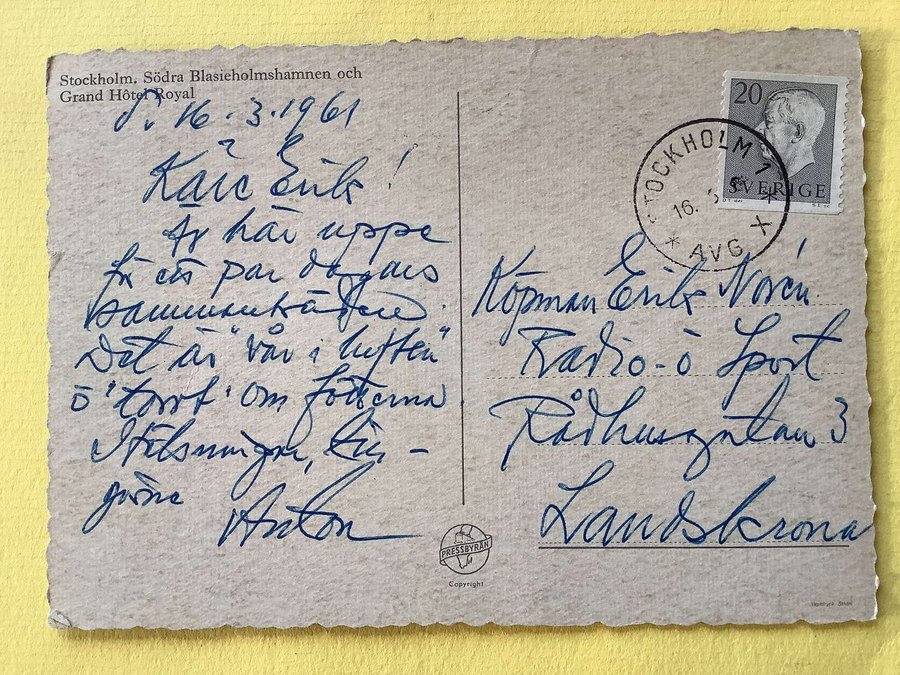 Stockholm. Södra Blasieholmshamnen och
Grand Hôtel Royal
16.3.1961
Käre Erik!
Är här uppe
för ett par dagars
sammanträde.
Det är "vår i luften"
o "torrt" om fötterna
Hälsningar,
Anton
20
SVERIGE
STOCKHOLM 1
16.
* AVG X *
Köpman Erik Norén
Radio- o Sport
Rådhusgatan 3
Landskrona
PRESSBYRÅN
Copyright